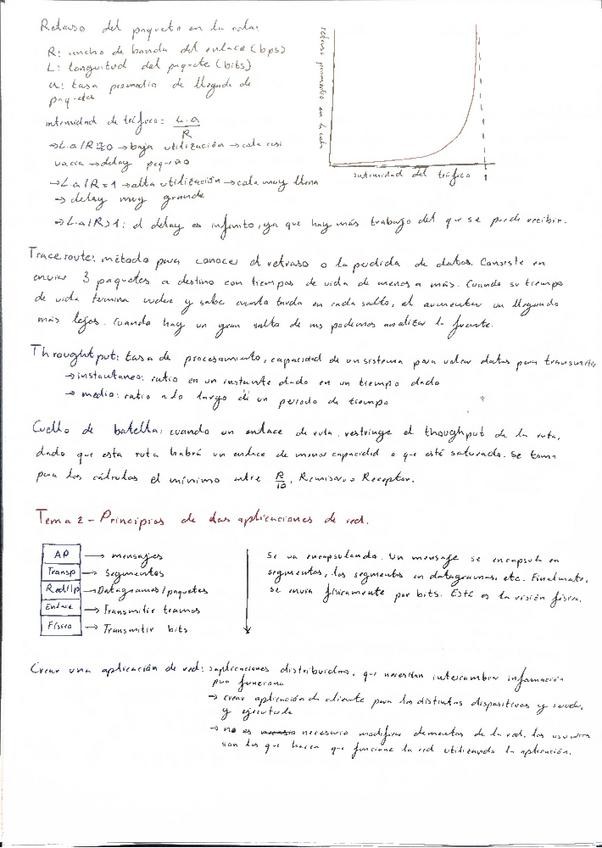 Retraso del paquete en la cola:
R: ancho de banda del enlace (bps)
L: longuitud del paquete (bits)
a: tasa promedio de llegada de
paquetes
intensidad de tráfico: L·a/R
→ L·a/R≅0 → baja utilización → cola casi
vacia → delay pequeño
→ L·a/R≈1 → alta utilización → cola muy llena
→ delay muy grande
→ L·a/R>1: el delay es infinito, ya que hay más trabajo del que se puede recibir.
retraso promedio en la cola
intensidad del tráfico
1
Traceroute: método para conocer el retraso o la perdida de datos. Consiste en
enviar 3 paquetes a destino con tiempos de vida de menos a más. Cuando su tiempo
de vida termina vuelve y sabe cuanto tarda en cada salto, al aumentar va llegando
más lejos. Cuando hay un gran salto de ms podemos analizar la fuente.
Throughtput: tasa de procesamiento, capacidad de un sistema para valorar datos para transmitir
→ instantaneo: ratio en un instante dado en un tiempo dado
→ medio: ratio a lo largo de un periodo de tiempo
Cuello de botella: cuando un enlace de ruta restringe el thoughput de la ruta,
dado que esta ruta habrá un enlace de menor capacidad o que esté saturado. Se toma
para los cálculos el mínimo entre R/10, Remisor o Receptor.
Tema 2 - Principios de las aplicaciones de red.
AP → mensajes
Transp → Segmentos
Red/Ip → Datagramas/paquetes
Enlace → Transmitir tramas
Físico → Transmitir bits
Se va encapsulando. Un mensaje se encapsula en
segmentos, los segmentos en datagramas, etc. Finalmente,
se envia físicamente por bits. Esté es la visión física.
Crear una aplicación de red: aplicaciones distribuidas, que necesitan intercambiar información
para funcionar
→ crear aplicación de cliente para los distintos dispositivos y
y ejecutarla
→ no es necesario modificar elementos de la red, los usuarios
son los que hacen que funcione la red utilizando la aplicación.